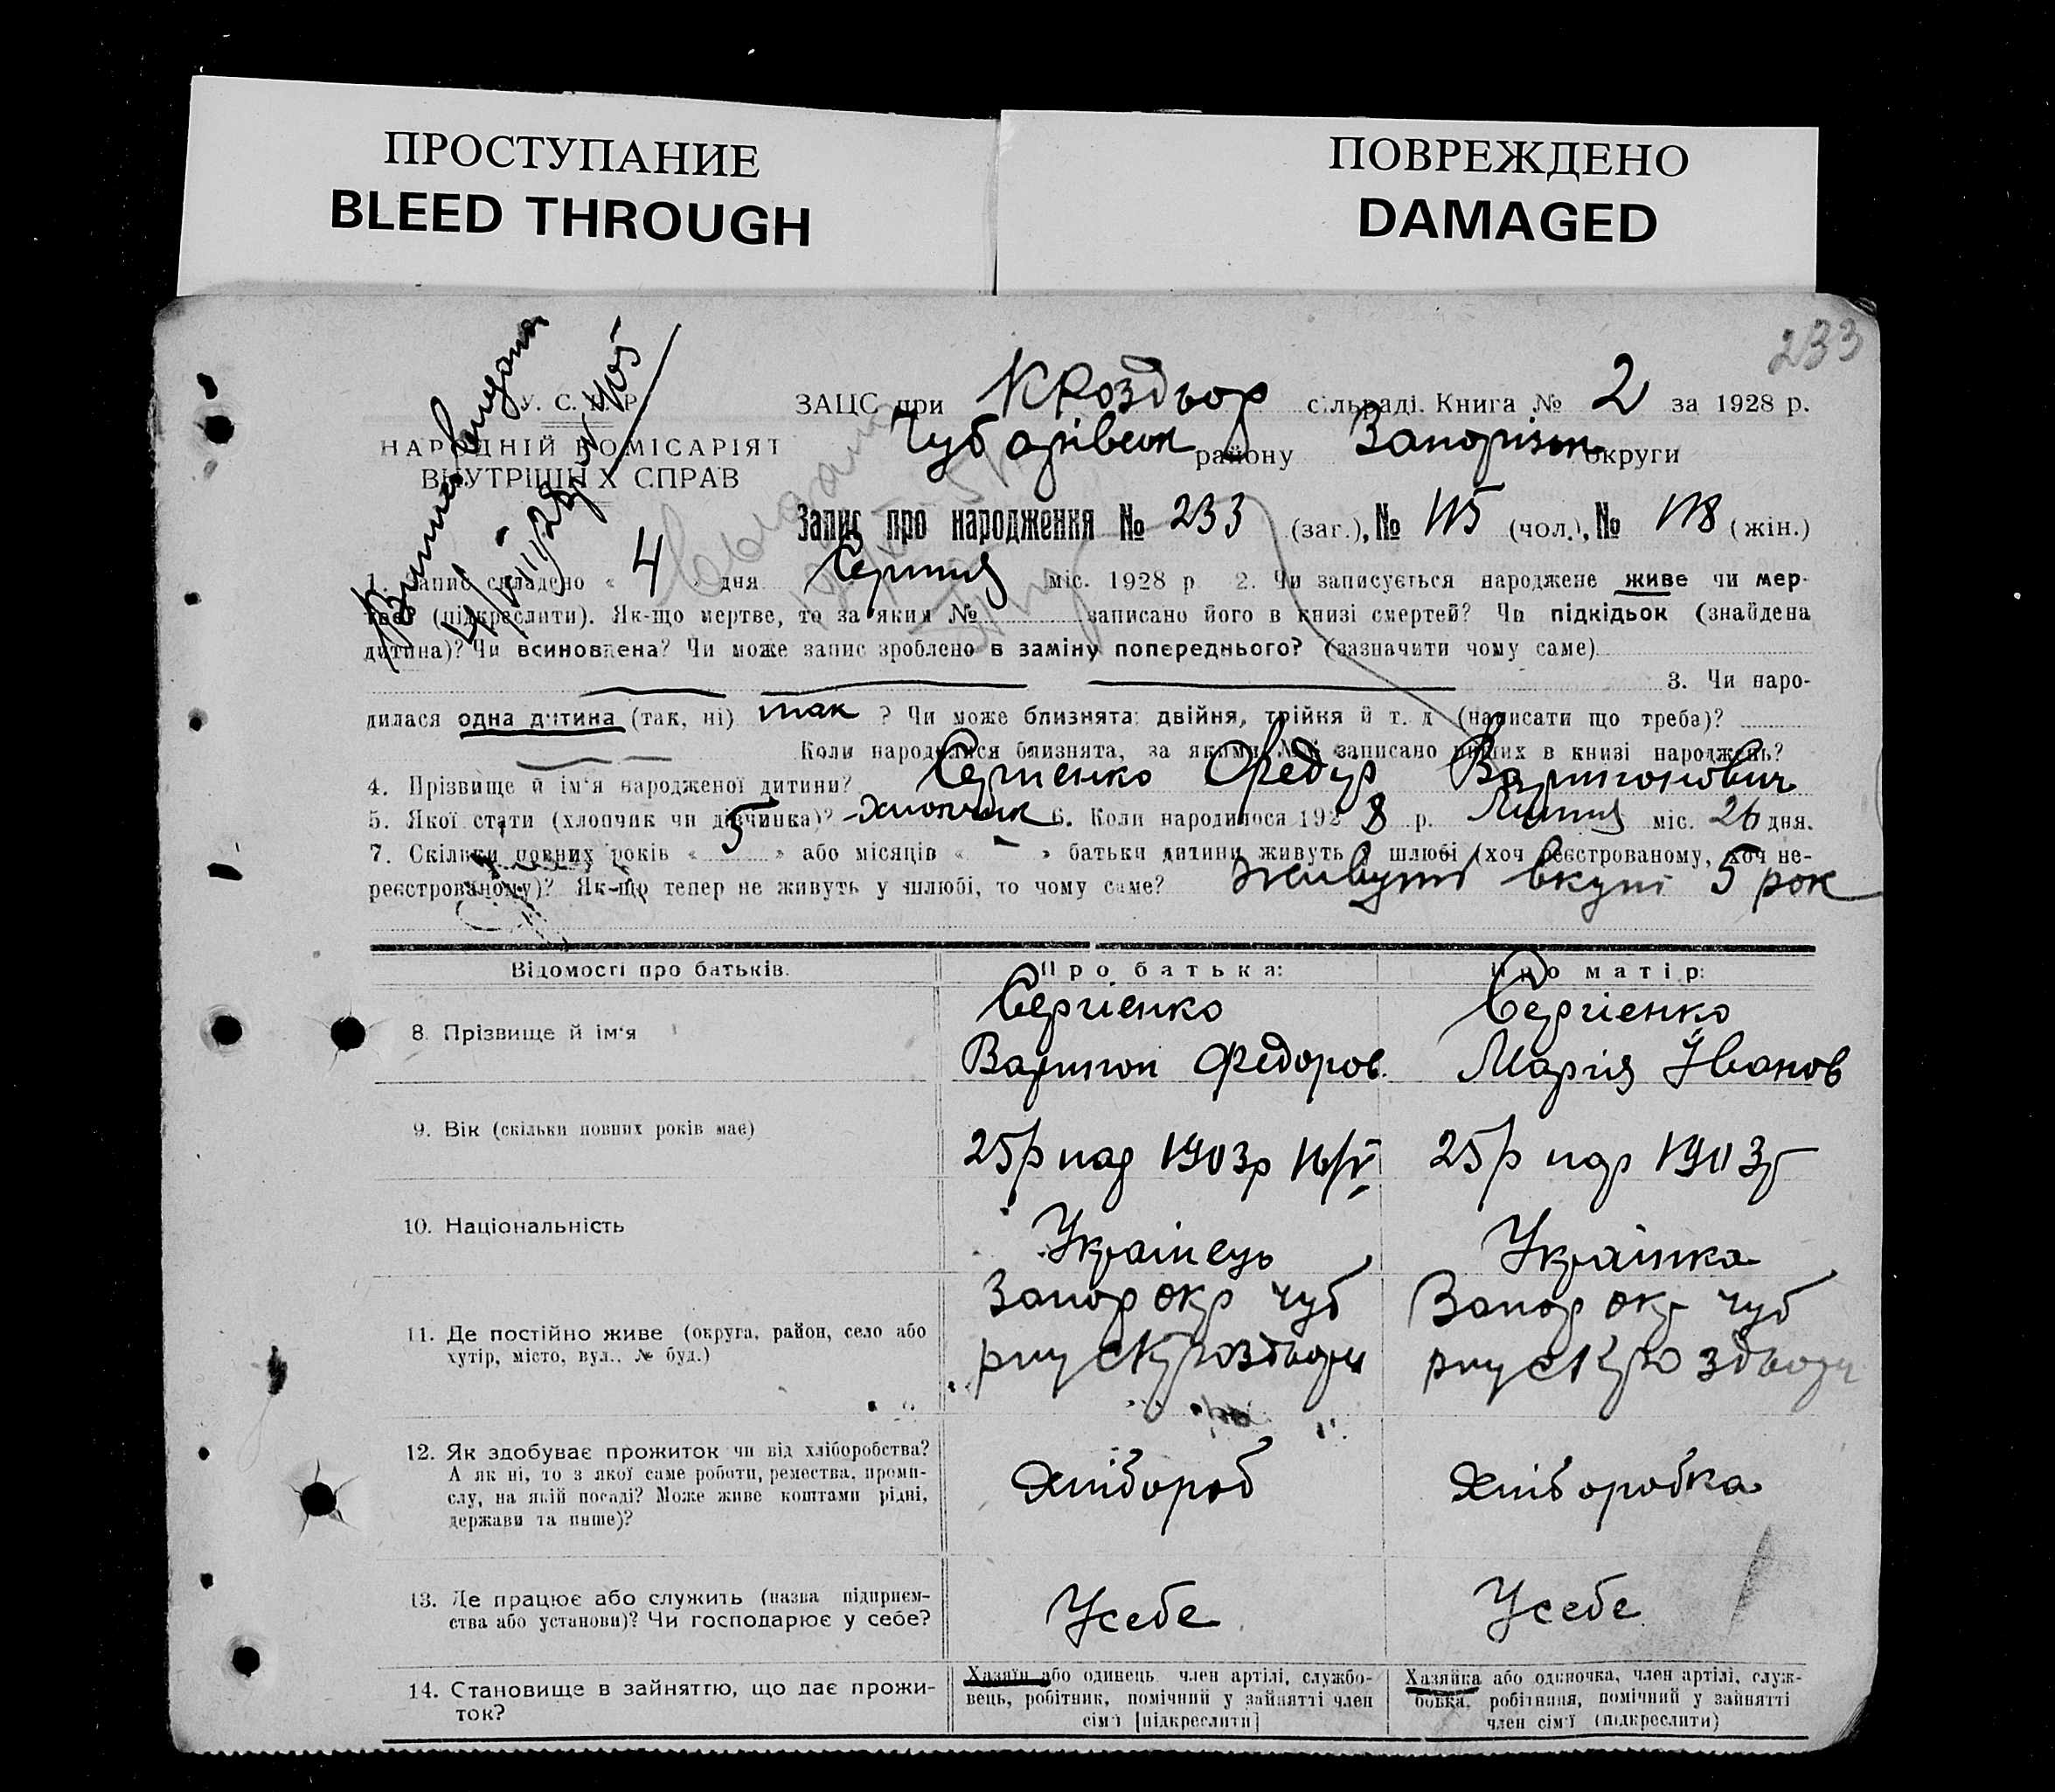 ПРОСТУПАНИЕ
BLEED THROUGH
ПОВРЕЖДЕНО
DAMAGED
233
У. С. Р. Р.
НАРОДНІЙ КОМІСАРІЯТ
ВНУТРІШНІХ СПРАВ
ЗАЦС при К Роздьор сільраді. Книга № 2 за 1928 р.
Чубарівськ району Запоріжж округи
Запис про народження № 233 (заг.), № 115 (чол.), № 118 (жін.)
1. Запис складено « 4 » дня Серпня міс. 1928 р. 2. Чи записується народжене живе чи мер-
тве (підкреслити). Як-що мертве, то за яким № записано його в книзі смертей? Чи підкідьок (знайдена
дитина)? Чи всиновлена? Чи може запис зроблено в заміну попереднього? (зазначити чому саме)
3. Чи наро-
дилася одна дитина (так, ні) так ? Чи може близнята: двійня, трійня й т. д. (написати що треба)?
Коли народилися близнята, за якими №№ записано инших в книзі народжень?
4. Прізвище й ім'я народженої дитини? Сергіенко Федір Харитонович
5. Якої стати (хлопчик чи дівчинка)? хлопчик 6. Коли народилося 1928 р. Липня міс. 26 дня.
7. Скільки повних років « 5 » або місяців « - » батьки дитини живуть у шлюбі (хоч реєстрованому, хоч не-
реєстрованому)? Як-що тепер не живуть у шлюбі, то чому саме? живуть вкупі 5 рок
Відомості про батьків.
Про батька:
Про матір:
8. Прізвище й ім'я
Сергіенко
Федоров.
Сергіенко
Марія Іванов
9. Вік (скільки повних років має)
25 р нар 1903 р 16/IV
25 р нар 1903 р
10. Національність
Украінець
Украінка
11. Де постійно живе (округа, район, село або
хутір, місто, вул., № буд.)
Запор окр Чуб
рну с К роздори
Запор окр Чуб
рну с К роздори
12. Як здобуває прожиток чи від хліборобства?
А як ні, то з якої саме роботи, ремества, проми-
слу, на якій посаді? Може живе коштами рідні,
держави та инше)?
Хлібороб
Хліборобка
13. Де працює або служить (назва підприєм-
ства або установи)? Чи господарює у себе?
Усебе
Усебе
14. Становище в зайняттю, що дає прожи-
ток?
Хазяїн або одинець член артілі, службо-
вець, робітник, помічний у зайнятті член
сім'ї [підкреслити]
Хазяйка або одиночка, член артілі, служ-
бовка, робітниця, помічний у зайнятті
член сім'ї (підкреслити)